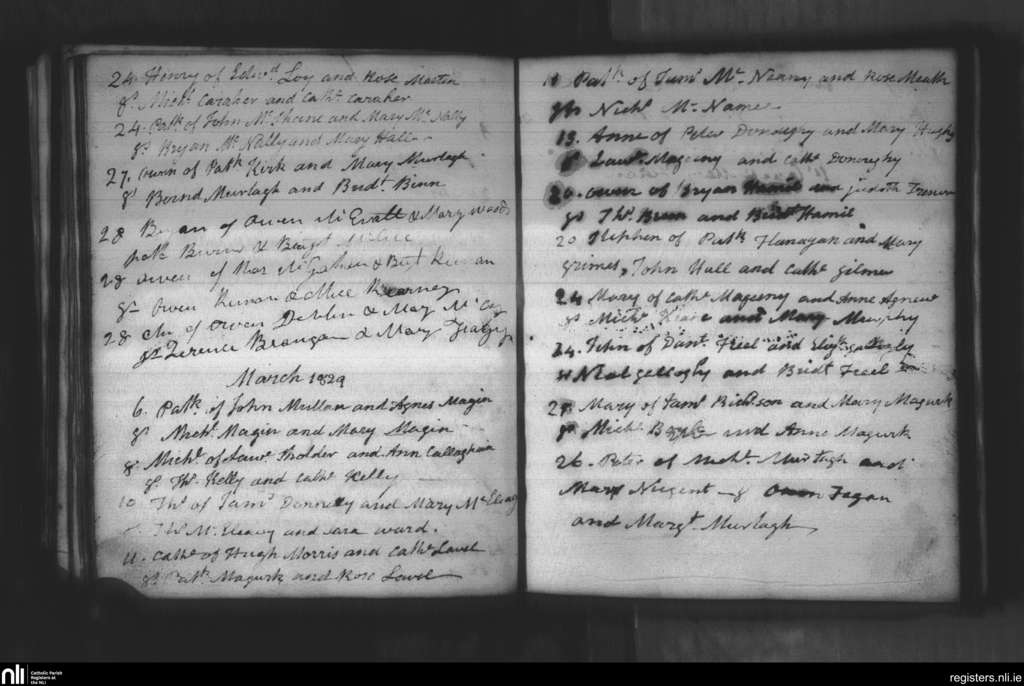 24. Henry of Edwd Loy and Rose Martin
gs. Michl Caraher and Cathe Caraher
24. Patk of John Mc Shane and Mary Mc Nally
gs Bryan Mc Nally and Mary Hall
27. Owen of Patk Kirk and Mary Murtagh
gs Bernd Murtagh and Bridt Binn
28 Bryan of Owen Mc Evatt & Mary Woods
Patk &
28 Owen of & Bridt Keenan
gs Owen Keenan & Alice Kearney
28 of Owen Devlin & Mary Mc
gs Terence Brangan & Mary
March 1829
6. Patk of John Mullan and Agnes Magin
gs Michl Magin and Mary Magin
8. Michl of Lawe Holder and Ann Callaghan
gs Ths Kelly and Cathe Kelly
10 Ths of Jams Donnelly and Mary Mc
Ths Mc and Sara Ward.
11. Cathe of Hugh Morris and Cathe Lavel
gs Patk Magurk and Rose Lavel
11 Patk of Jams Mc Neany and Rose Meath
gs Nichs Mc Name
13. Anne of Peter Donoughy and Mary Hughs
Lawe Mageeny and Cathe Donoughy
20. Owen of Bryan Hamil and Judith
gs Ths Breen and Bridt Hamil
20 Stephen of Patk Flanagan and Mary
Grimes, John Hall and Cathe Gilmer
24 Mary of Cathe Mageeny and Anne Agnew
gs Michl Keane and Mary Murphy
24. John of Danl Feel and
Neal Gelloghy and Bridt Feel
25 Mary of Jams Richson and Mary Magurk
gs Michl Boyle and Anne Magurk
26. Peter of Michl Murtagh and
Mary Nugent - gs Owen Fagan
and Margt Murtagh
nli Catholic Parish Registers at the NLI
registers.nli.ie